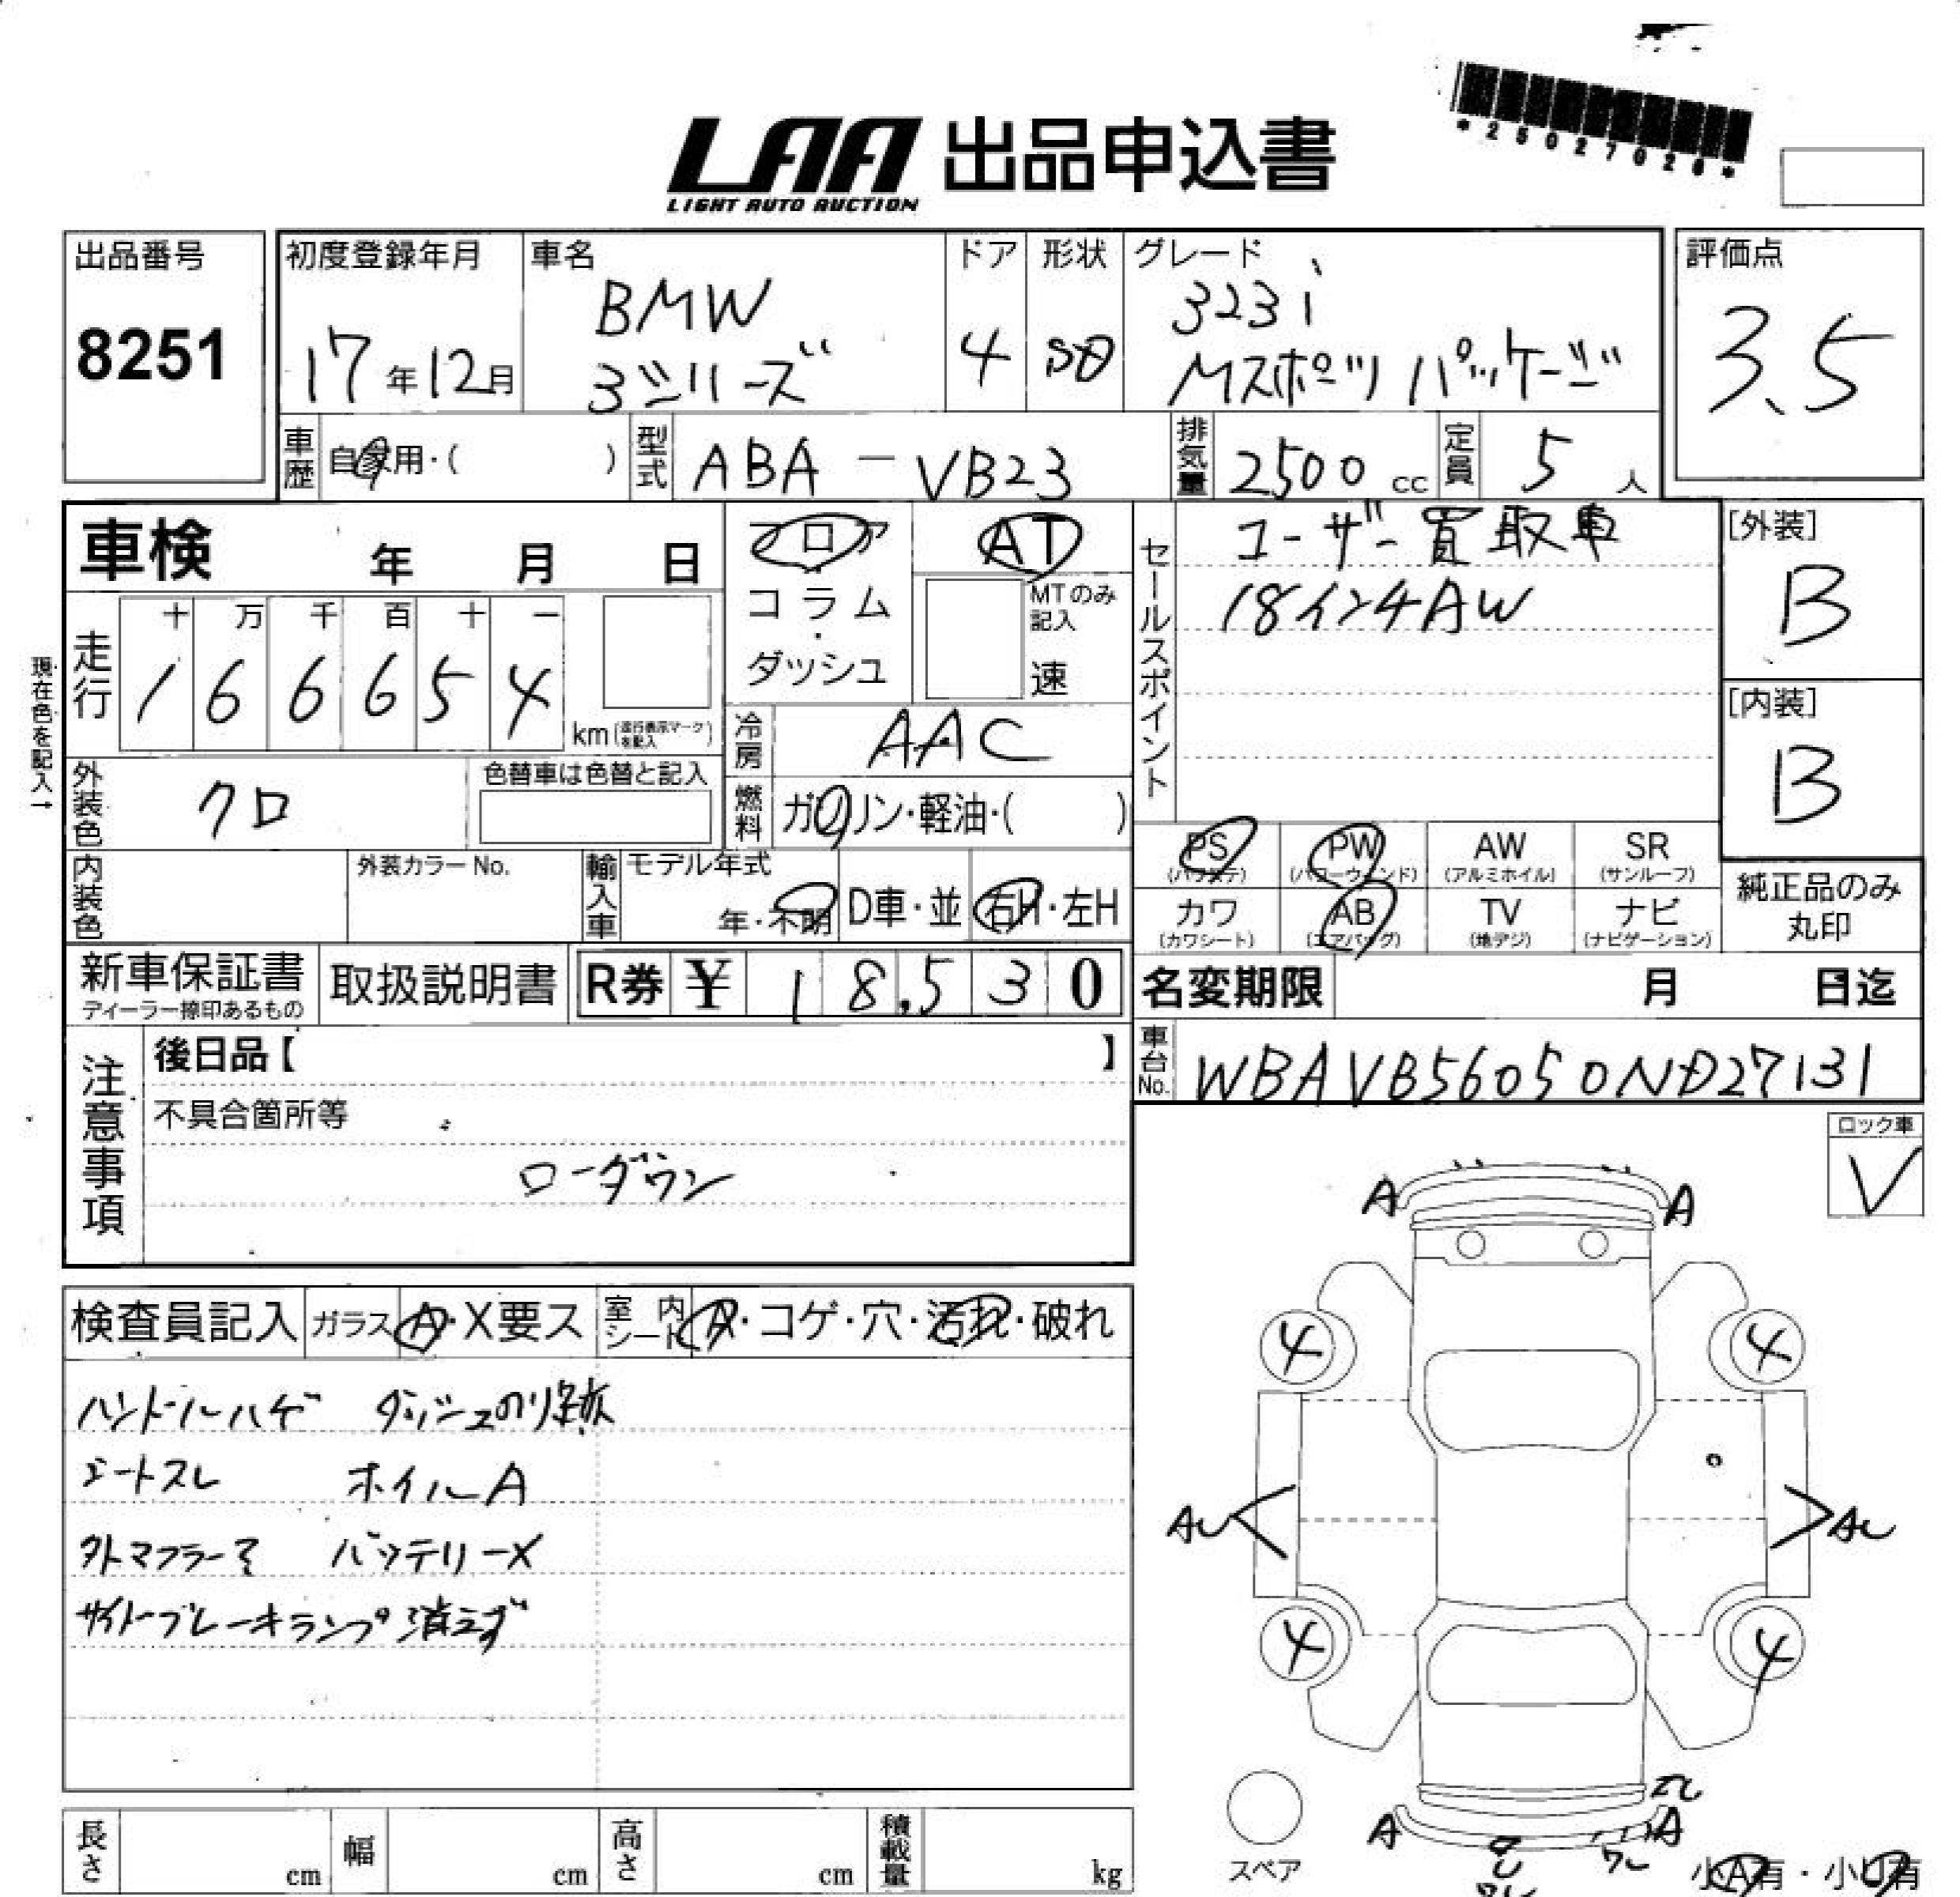 *25027028*
LAA 出品申込書
LIGHT AUTO AUCTION
出品番号
8251
初度登録年月
17年12月
車名
BMW
3シリーズ
ドア
4
形状
SD
グレード
323i
Mスポーツ パッケージ
評価点
3.5
車歴
自家用・( )
型式
ABA-VB23
排気量
2500 cc
定員
5 人
車検 年 月 日
フロア
・
コラム
・
ダッシュ
AT
MTのみ
記入
速
セールスポイント
ユーザー買取車
18インチAW
[外装]
B
[内装]
B
走行
十 万 千 百 十 一
1 6 6 6 5 4
km(走行表示マークを記入)
現在色を記入→
冷房
AAC
燃料
ガソリン・軽油・( )
外装色
クロ
色替車は色替と記入
内装色
外装カラー No.
輸入車
モデル年式
年・不明
D車・並
右H・左H
PS
(パワステ)
PW
(パワーウィンド)
AW
(アルミホイル)
SR
(サンルーフ)
カワ
(カワシート)
AB
(エアバッグ)
TV
(地デジ)
ナビ
(ナビゲーション)
純正品のみ
丸印
新車保証書
ディーラー捺印あるもの
取扱説明書
R券 ¥ 18,530
名変期限 月 日迄
車台No.
WBAVB56050ND27131
注意事項
後日品【 】
不具合箇所等
ローダウン
ロック車
V
A A
4 4
AU AU
4 4
A A
スペア
小A有・小U有
検査員記入 ガラス A・X要ス 室内シート A・コゲ・穴・汚れ・破れ
ハンドルハゲ ダッシュのり跡
シートスレ ホイルA
外トマフラー
バッテリーX
サイドブレーキランプ消えず
長さ cm 幅 cm 高さ cm 積載量 kg